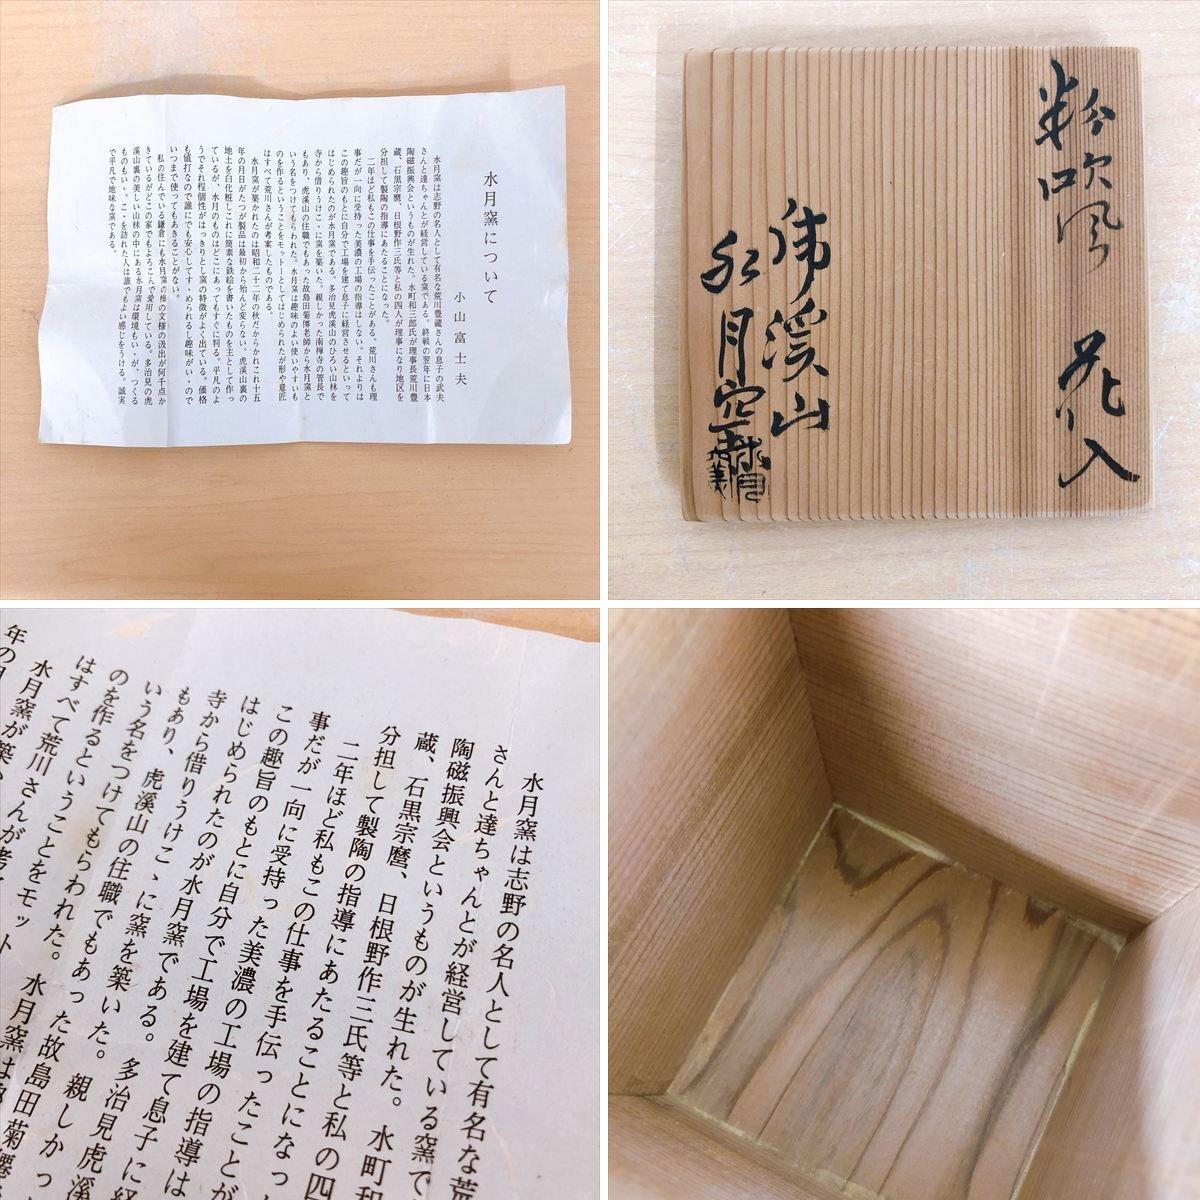 水月窯について
小山富士夫
水月窯は志野の名人として有名な荒川豊蔵さんの息子の武夫
さんと達ちゃんとが経営している窯である。終戦の翌年に日本
陶磁振興会というものが生れた。水町和三郎氏が理事長荒川豊
蔵、石黒宗麿、日根野作三氏等と私の四人が理事になり地区を
分担して製陶の指導にあたることになった。
二年ほど私もこの仕事を手伝ったことがある。荒川さんも理
事だが一向に受持った美濃の工場の指導はしない。それよりは
この趣旨のもとに自分で工場を建て息子に経営させるといって
はじめられたのが水月窯である。多治見虎溪山のひろい山林を
寺から借りうけこゝに窯を築いた。親しかった南禅寺の管長で
もあり、虎溪山の住職でもあった故島田菊僊老師から水月窯と
いう名をつけてもらわれた。水月窯は趣味のよい使いやすいも
のを作るということをモットーとしてはじめられたが形や意匠
はすべて荒川さんが考案したものである。
水月窯が築かれたのは昭和二十二年の秋だからかれこれ十五
年の月日がたつが製品は最初から殆んど変らない。虎溪山裏の
地土を白化粧しこれに簡素な鉄絵を書いたものを主として作っ
ているが、水月のものはどこにあってもすぐに判る。平凡のよ
うでそれ程個性がはっきりとし窯の特徴がよく出ている。価格
も値打なので誰にでも安心してすゝめられるし趣味がいゝので
いつまで使ってもあきることがない。
私の住んでいる鎌倉にも水月窯の梅の文様の汲出が何千点か
きているがどこの家でもよろこんで愛用している。多治見の虎
溪山裏の美しい山林の中にある水月窯は環境もいゝが、つくる
ものもいゝ。こゝを訪れた人は誰でもよい感じをうける。誠実
で平凡で地味な窯である。
粉吹風 花入
虎溪山
水月窯
水月窯は志野の名人として有名な荒
さんと達ちゃんとが経営している窯で
陶磁振興会というものが生れた。水町和
蔵、石黒宗麿、日根野作三氏等と私の四
分担して製陶の指導にあたることになっ
二年ほど私もこの仕事を手伝ったことが
事だが一向に受持った美濃の工場の指導は
この趣旨のもとに自分で工場を建て息子に経
はじめられたのが水月窯である。多治見虎溪
寺から借りうけこゝに窯を築いた。親しかっ
もあり、虎溪山の住職でもあった故島田菊僊
いう名をつけてもらわれた。水月窯は
のを作るということをモット
はすべて荒川さんが考
水月窯が築
年の月